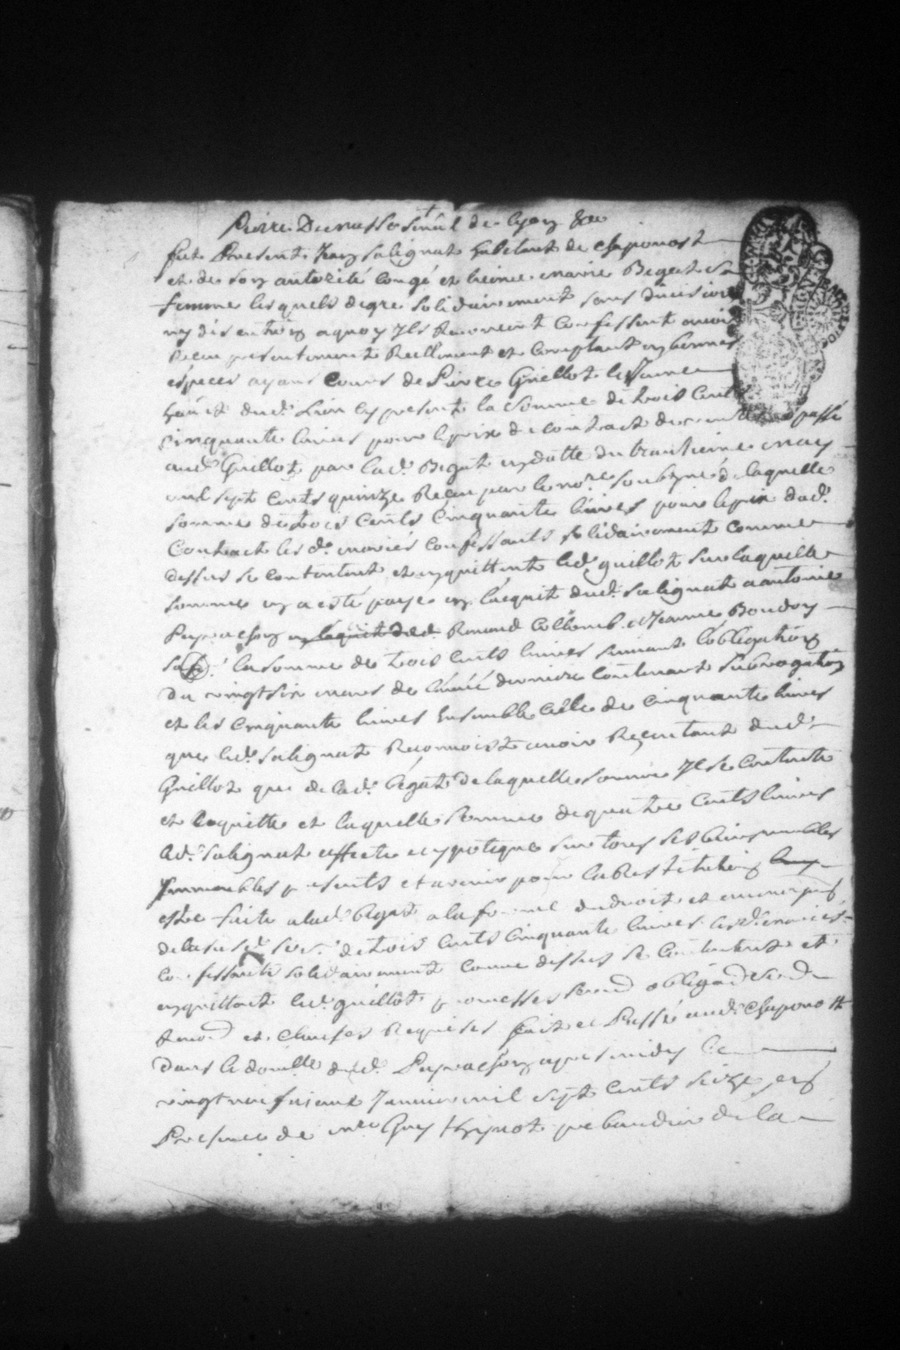 Pierre Dumasse sénéal de Lyon &c
fut Present Jean Salignat habitant de Chaponost
et de son autorité congé et licence marie Begat sa
femme lesquels de gré solidairement sans division
ny discution a quoy ils renoncent confessent avoir
Receu presentement Reellement et comptant en bonnes
especes ayans cours de Pierre Guillot le Jeune
hant dud. Lieu cy present la somme de trois cents
cinquante livres pour le prix de contract de passé
aud. Guillot par lad. Begat en datte du treizieme may
mil sept cents quinze Receu par le nore soubzne de laquelle
somme de trois cents cinquante livres pour le prix dud.
Contract lesd. mariés confessants solidairement comme
dessus se contentent et en quittent led. guillot sur laquelle
somme en a esté payé en l'acquit dud. Salignat a antoine
en laquit dud. Renaud Collomb et Jeanne Boudoy
sa la somme de trois cents livres suivant l'obligation
du vingt six mars de l'année derniere contenant subrogation
et les cinquante livres Ensemble celle de cinquante livres
que led. Salignat Reconnoist avoir Reçeu tant dud.
Guillot que de lad. begat de laquelle somme Il se contente
et en quitte et laquelle somme de quatre cents livres
led. Salignat affecte et ypoteque sur tous ses biens meubles
Immeubles presents et avenir pour la Restitution
estre faite a lad. begat a la forme du droit et au moyens
de la susd. de trois cents cinquante livres lesd. mariés
confessants solidairement comme dessus se contentent et
en quittent led. guillot promesses serment obligaon
renon et clauses Requises fait et Passé aud. Chaponost
dans le domicille dud. apres midy le
vingt neufviesme Janvier mil sept cents seize en
Presence de mre Guy prebandier de la